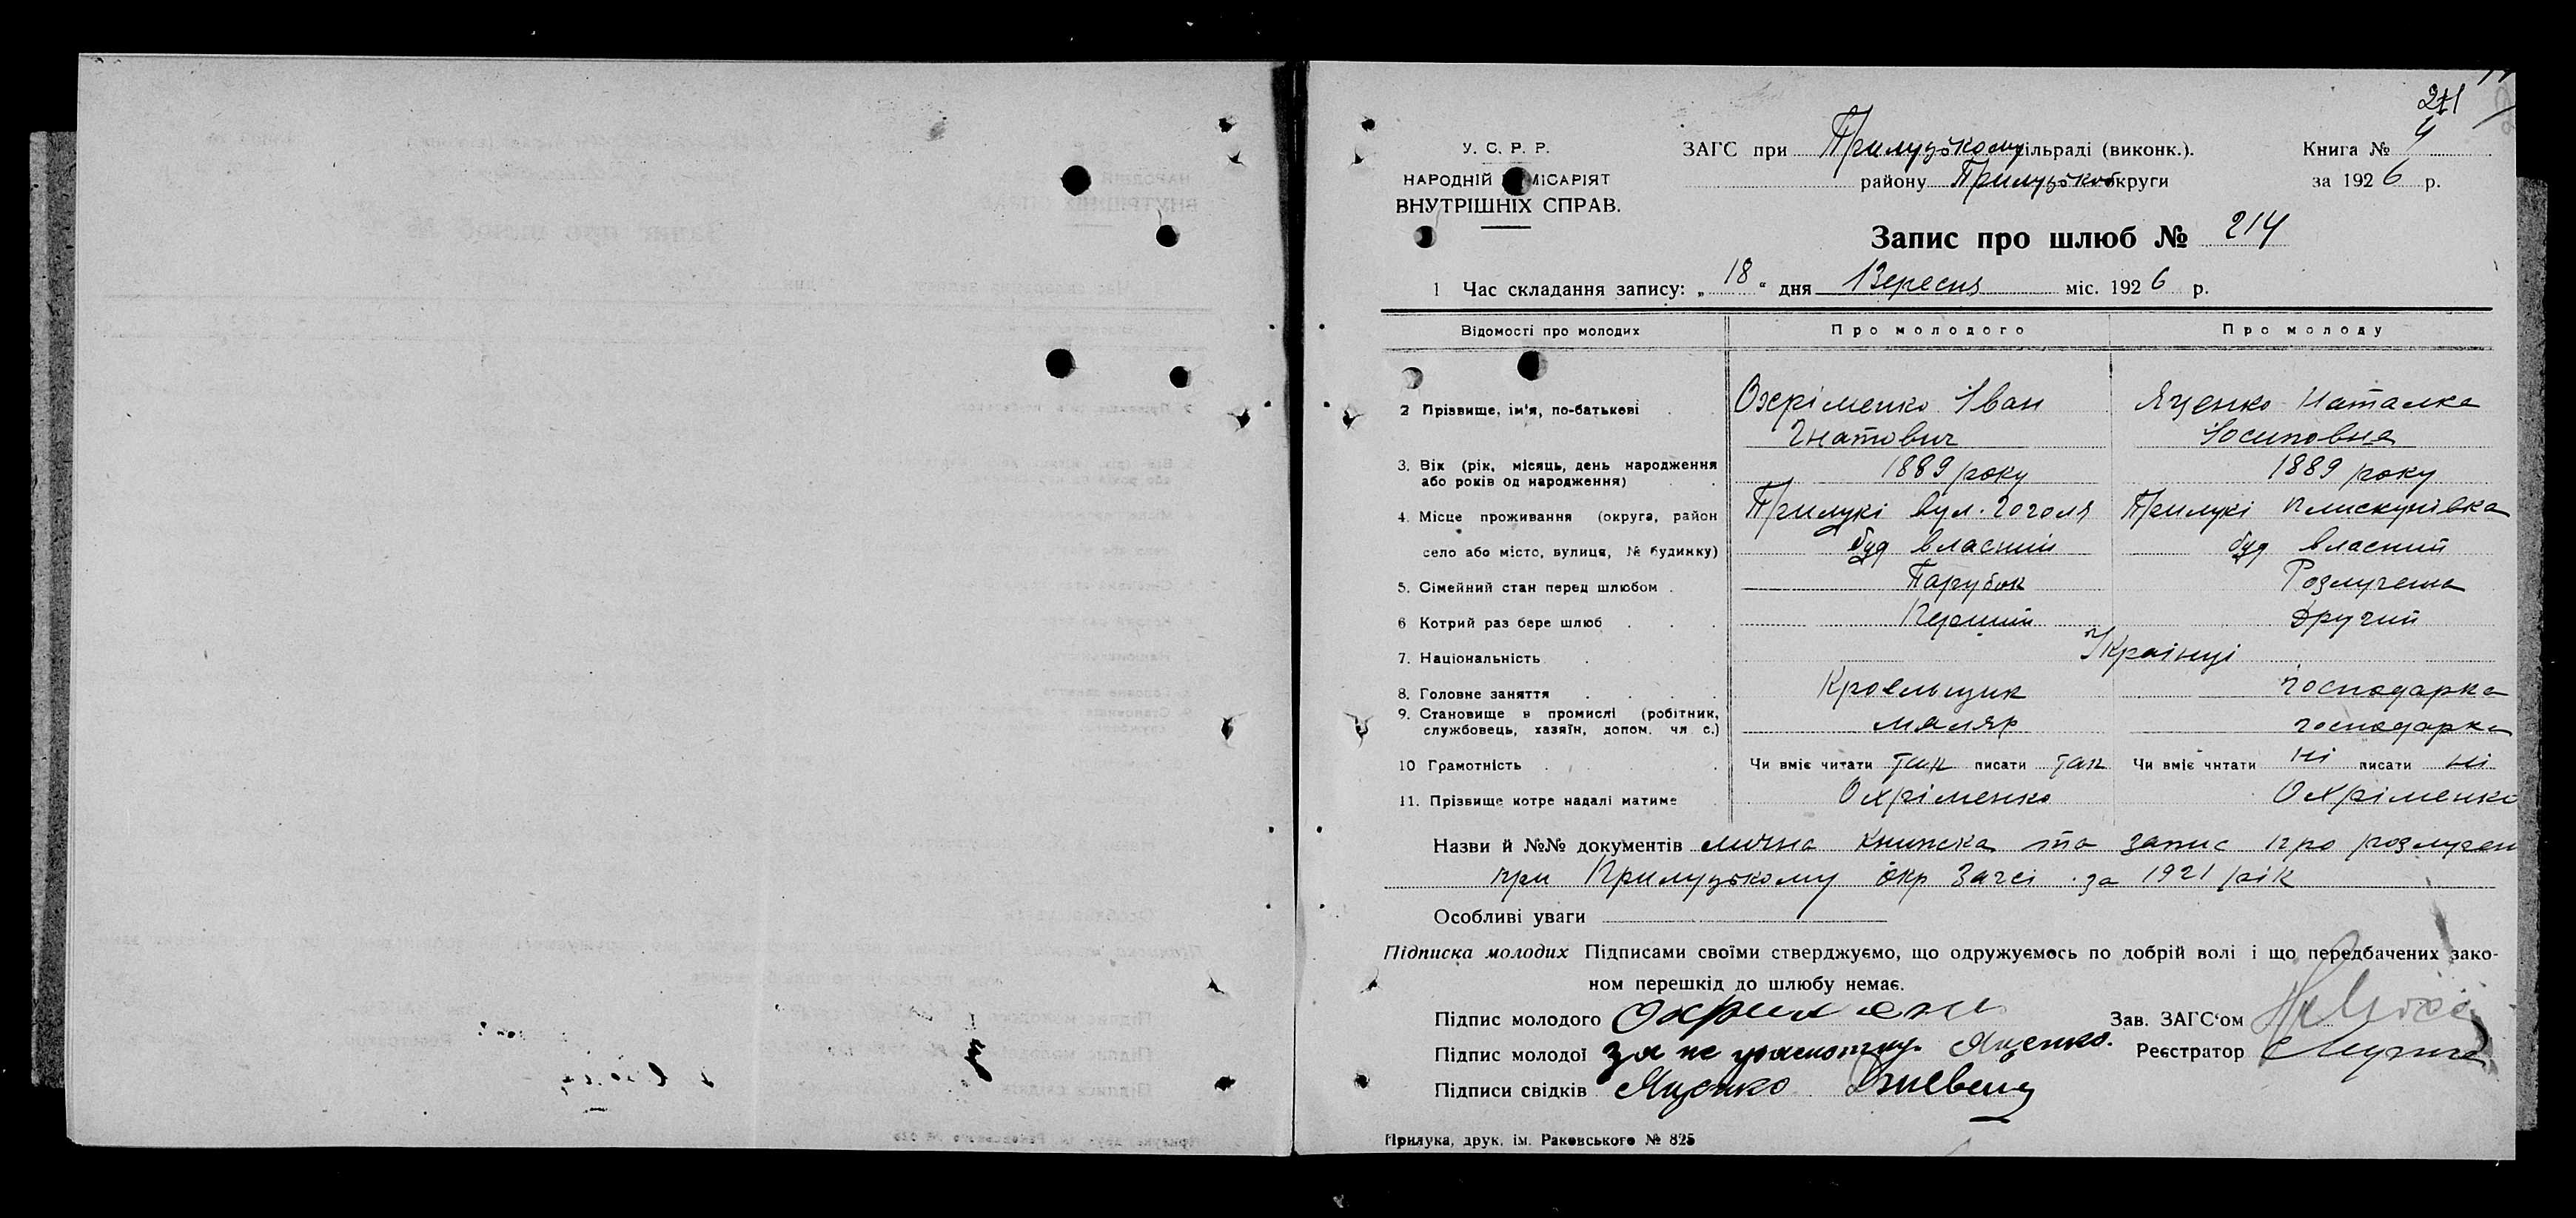 211
У. С. Р. Р.
НАРОДНІЙ КОМІСАРІЯТ
ВНУТРІШНІХ СПРАВ.
ЗАГС при Прилуцькому сільраді (виконк.).
Книга № 4
району Прилуцької округи
за 1926 р.
Запис про шлюб № 214
1 Час складання запису: „18“ дня Вересня міс. 1926 р.
Відомості про молодих Про молодого Про молоду
2 Прізвище, ім'я, по-батькові Охріменко Іван Яценко Наталка
Гнатович Йосиповна
3. Вік (рік, місяць, день народження
або років од народження) 1889 року 1889 року
4. Місце проживання (округа, район Прилукі вул. Гоголя Прилукі Плискунівка
село або місто, вулиця, № будинку) буд власний буд власний
5. Сімейний стан перед шлюбом Парубок Розлучена
6 Котрий раз бере шлюб Перший Другий
7. Національність Українці
8. Головне заняття Кроєльщик господарка
9. Становище в промислі (робітник,
службовець, хазяїн, допом. чл. с.) маляр господарка
10 Грамотність Чи вміє читати так писати так Чи вміє читати ні писати ні
11. Прізвище котре надалі матиме Охріменко Охріменко
Назви й №№ документів лична книжка та запис про розлучен
при Прилуцькому окр Загсі за 1921 рік
Особливі уваги
Підписка молодих Підписами своїми стверджуємо, що одружуємось по добрій волі і що передбачених зако-
ном перешкід до шлюбу немає.
Підпис молодого
Зав. ЗАГС‘ом
Підпис молодої За не грамотну Яценко.
Реєстратор
Підписи свідків Яценко
Прилука, друк. ім. Раковського № 825